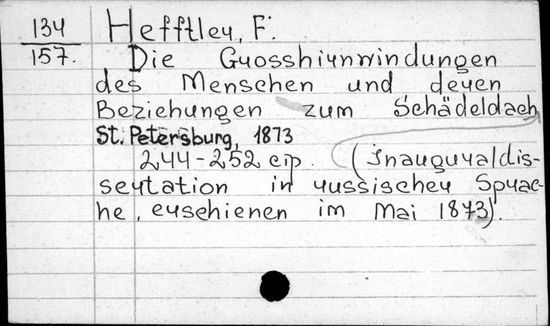 134
157.
Hefftler, F.
Die Grosshirnwindungen
des Menschen und deren
Beziehungen zum Schädeldach
St. Petersburg, 1873
244-252 стр. (Inauguraldis-
sertation in russischer Sprac-
he, erschienen im Mai 1873).